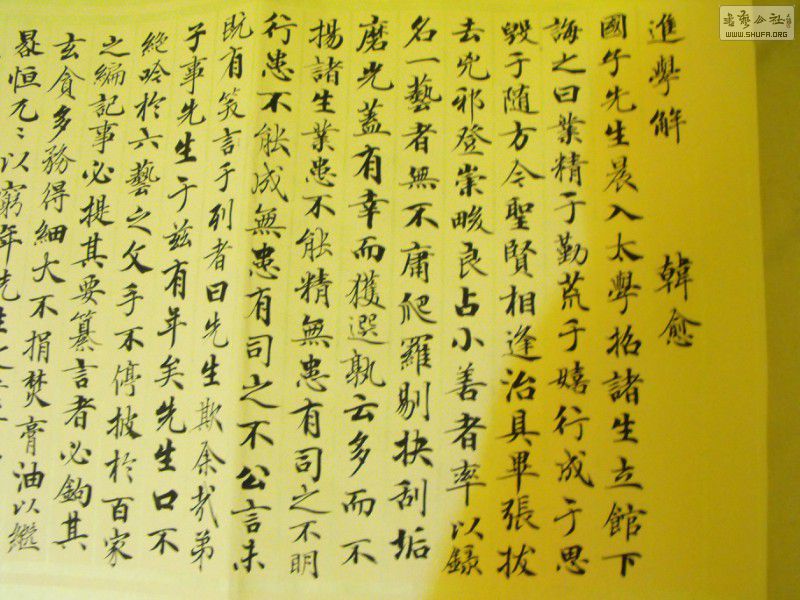 進學解 韓愈
國子先生晨入太學招諸生立館下
誨之曰業精于勤荒于嬉行成于思
毀于随方今聖賢相逢治具畢張拔
去兇邪登崇畯良占小善者率以錄
名一藝者無不庸爬羅剔抉刮垢
磨光蓋有幸而獲選孰云多而不
揚諸生業患不能精無患有司之不明
行患不能成無患有司之不公言未
既有笑言于列者曰先生欺余哉弟
子事先生于兹有年矣先生口不
絶吟於六藝之文手不停披於百家
之編記事必提其要纂言者必鉤其
玄貪多務得細大不捐焚膏油以繼
晷恒兀〻以窮年先生之
書藝公社
WWW.SHUFA.ORG